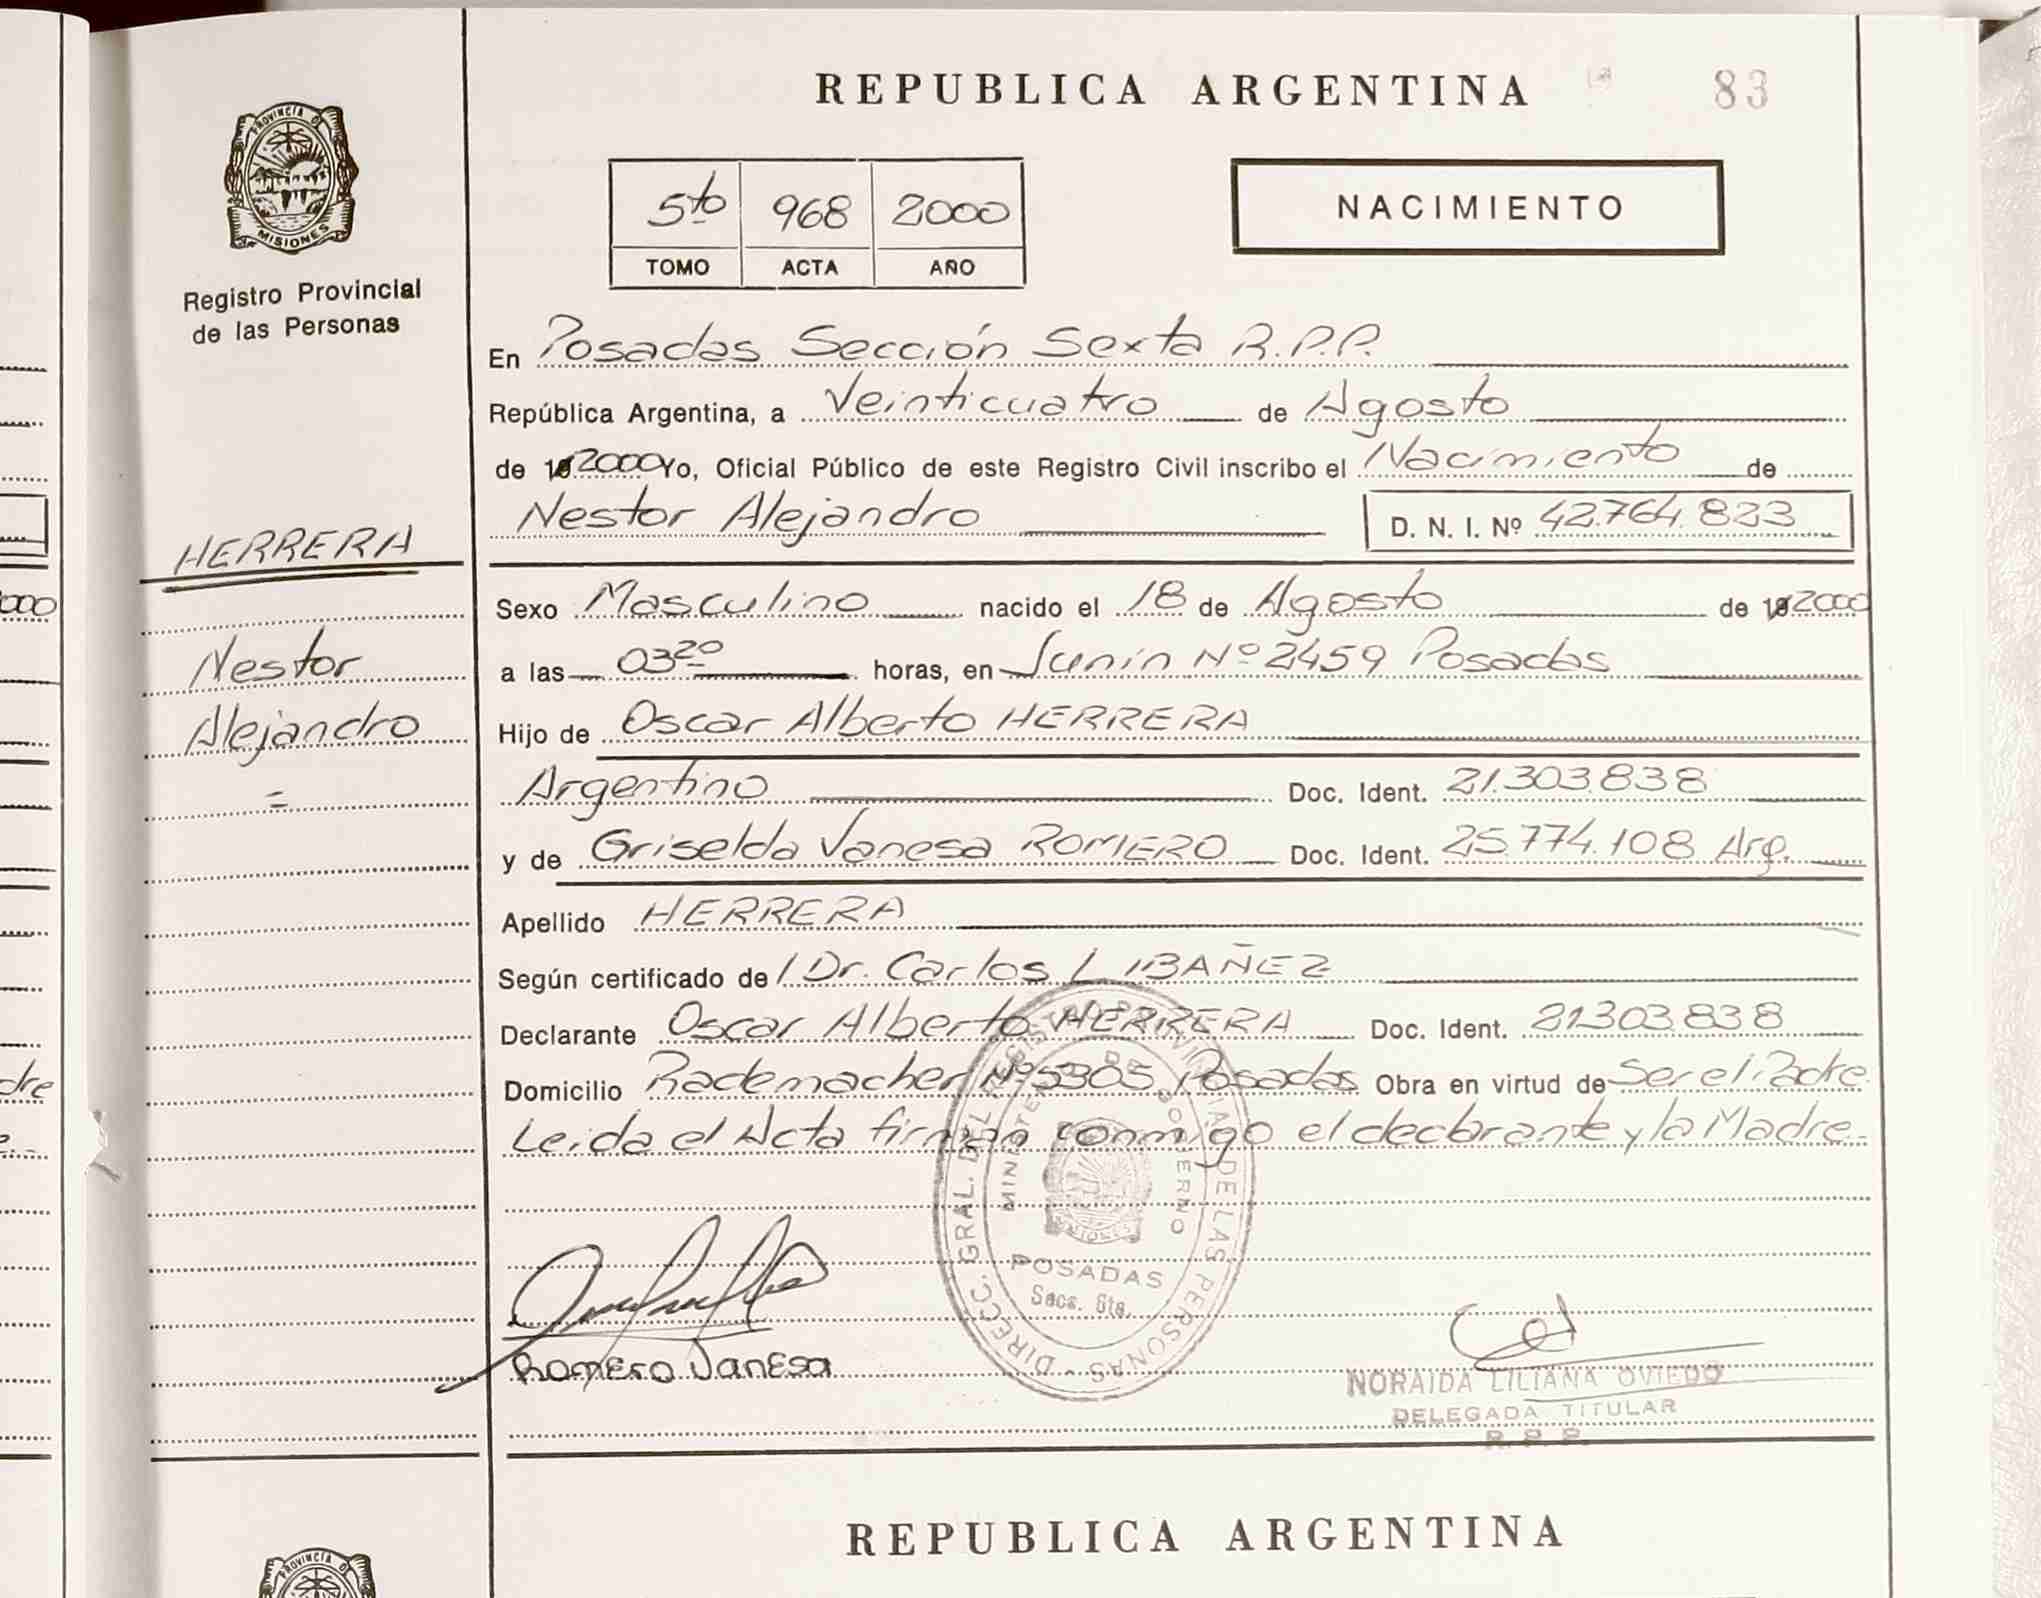 REPUBLICA ARGENTINA
83
PROVINCIA D
MISIONES
Registro Provincial
de las Personas
5to 968 2000
TOMO ACTA AÑO
NACIMIENTO
En Posadas Sección Sexta R.P.P.
República Argentina, a Veinticuatro de Agosto
de 2000 Yo, Oficial Público de este Registro Civil inscribo el Nacimiento de
Nestor Alejandro D. N. I. Nº 42.764.823
HERRERA
Nestor
Alejandro
=
Sexo Masculino nacido el 18 de Agosto de 2000
a las 03 20 horas, en Junín Nº 2459 Posadas
Hijo de Oscar Alberto HERRERA
Argentino Doc. Ident. 21.303.838
y de Griselda Vanesa ROMERO Doc. Ident. 25.774.108 Arg.
Apellido HERRERA
Según certificado de Dr. Carlos L IBAÑEZ
Declarante Oscar Alberto HERRERA Doc. Ident. 21.303.838
Domicilio Rademacher Nº 5305 Posadas Obra en virtud de Ser el Padre
Leida el Acta firman conmigo el declarante y la Madre.-
DIRECC. GRAL. DEL REGISTRO PROVINCIAL DE LAS PERSONAS -
MINISTERIO DE GOBIERNO
MISIONES
POSADAS
Secc. 6ta.
Romero Vanesa
NORAIDA LILIANA OVIEDO
DELEGADA TITULAR
R. P. P.
REPUBLICA ARGENTINA
PROVINCIA D
000
dre